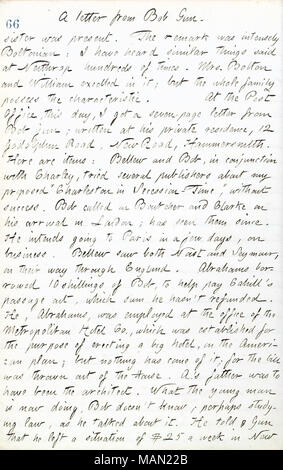 66
A letter from Bob Gun.
sister was present. The remark was intensely
Boltonian; I have heard similar things said
at Northrop hundreds of times. Mrs. Bolton
and William excelled in it; but the whole family
possess the characteristic. At the Post
Office, this day, I got a seven-page letter from
Bob Gun; written at his private residence, 12
Godolphin Road, New Road, Hammersmith.
Here are items: Bellew and Bob, in conjunction
with Charley, tried several publishers about my
proposed "Charleston in Secession-Time", without
success. Bob called on Boutcher and Clarke on
his arrival in London; has seen them since.
He intends going to Paris in a few days, on
business. Bellew saw both Nast and Seymour,
on their way through England. Abrahams bor-
rowed 10 shillings of Bob, to help pay Cahill's
passage act, which sum he hasn't refunded.
He, Abrahams, was employed at the office of the
Metropolitan Hotel Co, which was established for
the purpose of erecting a big hotel, on the Ameri-
can plan; but nothing has come of it; for the bill
was thrown out of the House. A's father was to
have been the architect. What the young man
is now doing, Bob doesn't know; perhaps study-
ing law, as he talked about it. He told Gun
that he left a situation of $25 a week in New
alamy
MAN22B